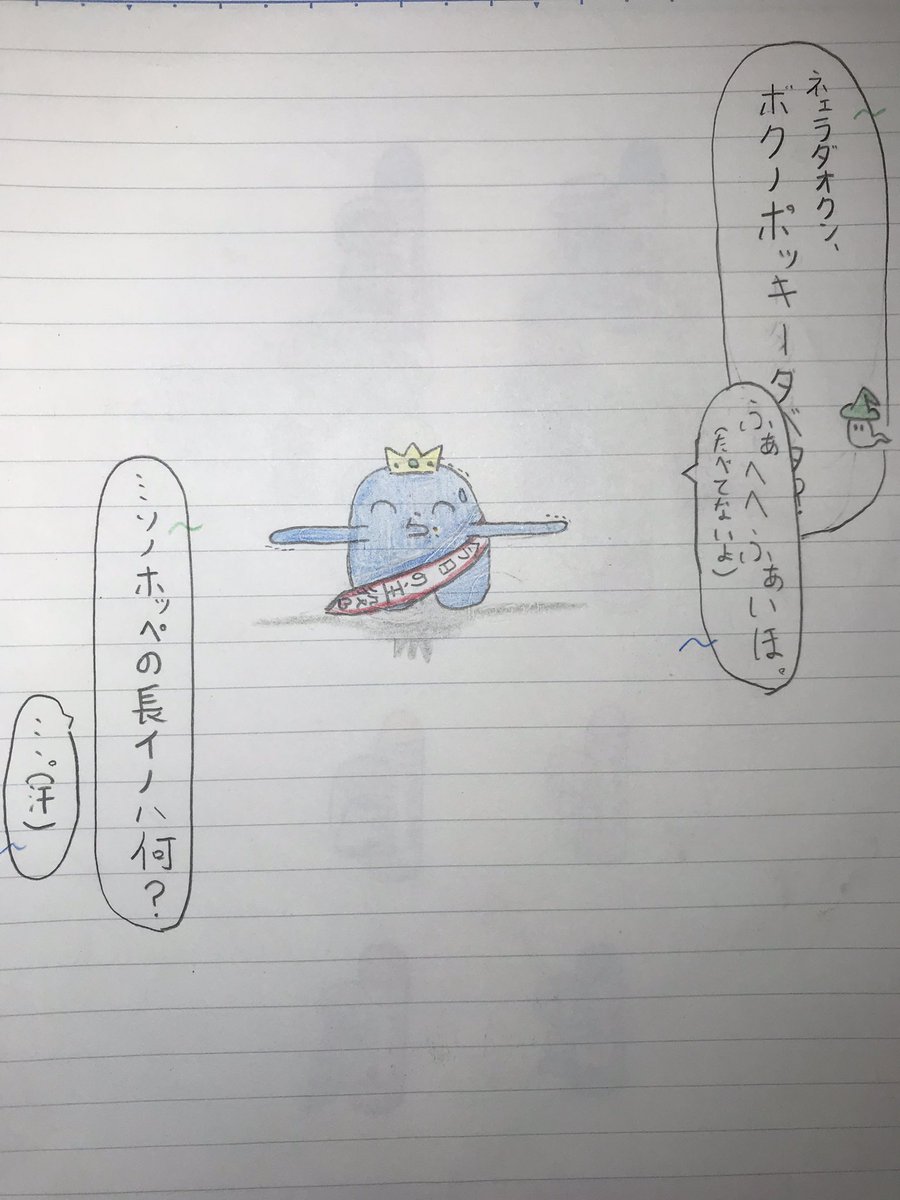 ネェラダオクン、
ボクノポッキータベタ?
ふぁへへふぁいほ。
(たべてないよ)
ら
今日の主役
…ソノホッペの長イノハ何?
…。(汗)